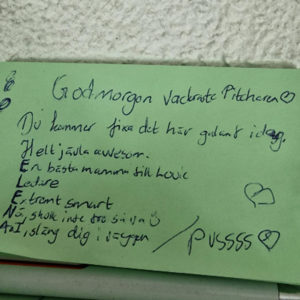 Godmorgon vackraste Pitcharen
Du kommer fixa det här galant idag.
Helt jävla awesom.
En bästa mamma till Louie
Ledare
Extremt smart
Nä, skoja inte
A=I, släng dig i väggen
/ PUSSSS